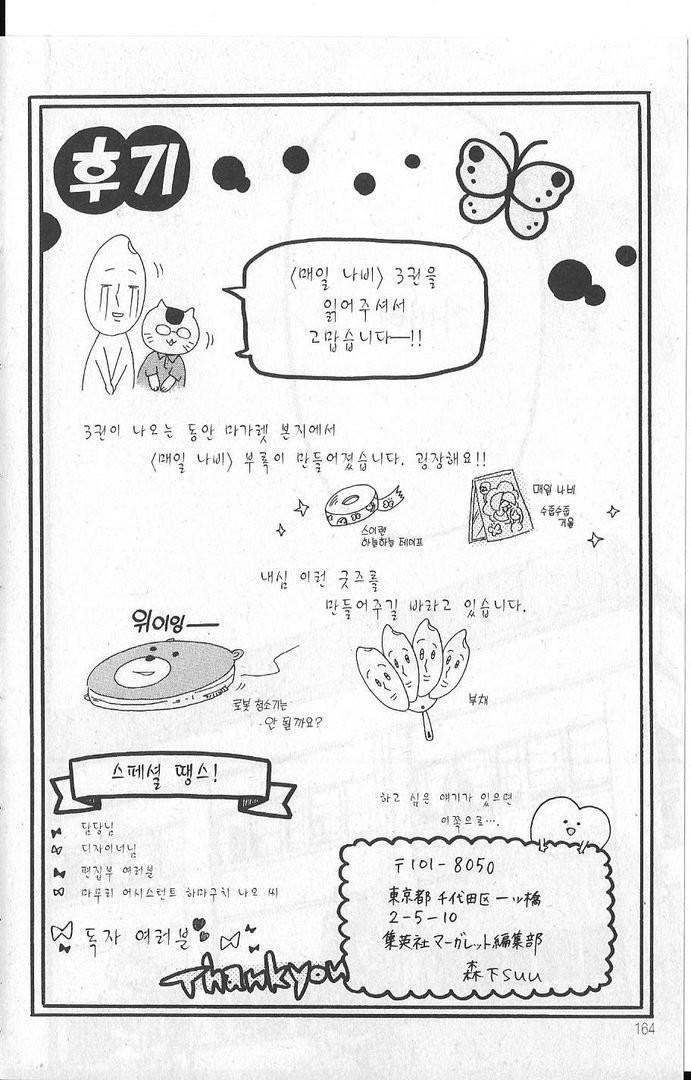 후기
〈매일 나비〉 3권을
읽어주셔서
고맙습니다—!!
3권이 나오는 동안 마가렛 본지에서
〈매일 나비〉 부록이 만들어졌습니다. 굉장해요!!
스이렌
하늘하늘 테이프
매일 나비
수줍수줍
거울
내심 이런 굿즈를
만들어주길 바라고 있습니다.
위이잉—
로봇 청소기는
안 될까요?
부채
스페셜 땡스!
담당님
디자이너님
편집부 여러분
마무리 어시스턴트 하마구치 나오 씨
독자 여러분
Thankyou
하고 싶은 얘기가 있으면
이쪽으로….
〒101-8050
東京都 千代田区 一ッ橋
2-5-10
集英社 マーガレット編集部
森下suu
164